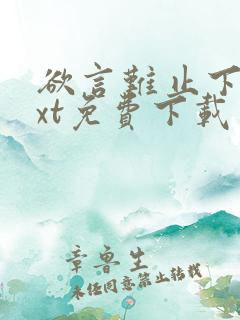 欲言難止下
xt免費下載
章魯生
未经同意禁止转载